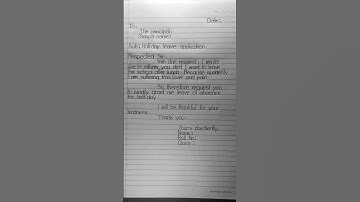 Date:
To,
The principal,
(School name)
Sub: Half day leave application
Respected Sir,
With due respect, I would
like to inform you that I want to leave
the school after lunch. Because suddenly
I am suffering from fever and pain.
So, therefore request you
to kindly grant me leave of absence
for half day.
I will be thankful for your
kindness.
Thank you
Yours obediently,
Name:
Roll No:
Class: